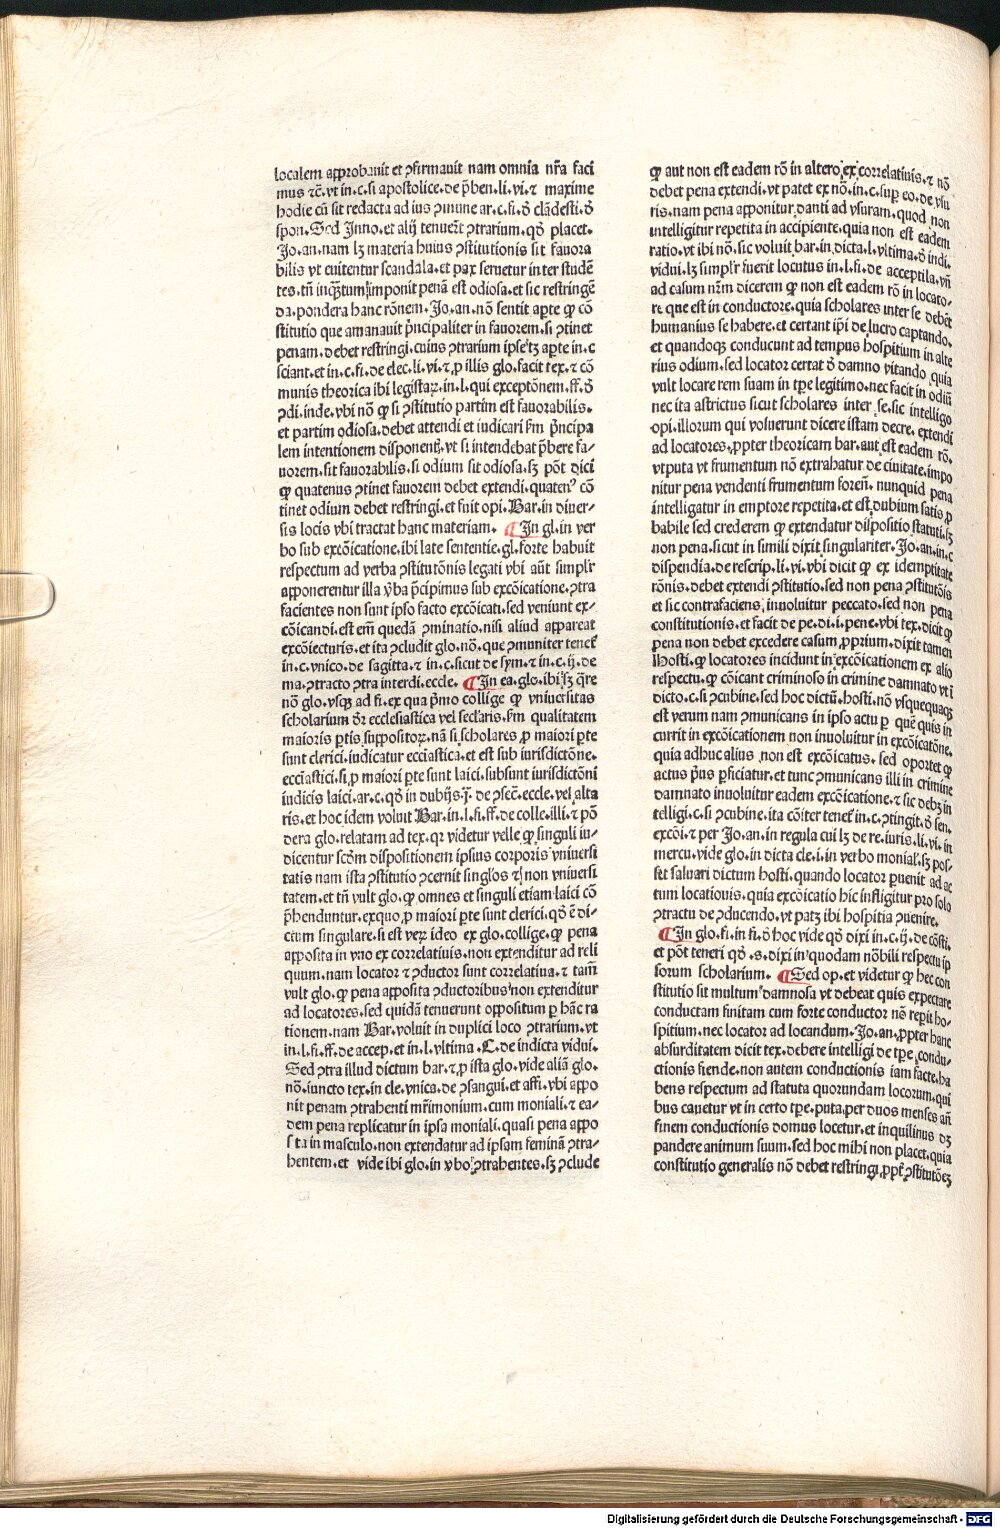 localem approbauit et ꝯfirmauit nam omnia nr̃a faci
mus ⁊c̃. vt in. c. si apostolice. de p̃ben. li. vi. ⁊ maxime
hodie cũ sit redacta ad ius ꝯmune ar. c. fi. ð clãdesti. ð
spon. Sed Inno. et alij tenuer̃t ꝯtrarium. qð placet.
Jo. an. nam lꝫ materia huius ꝯstitutionis sit fauora
bilis vt euitentur scandala. et pax seruetur inter studẽ
tes. tñ inq̃ꝫtum imponit penã est odiosa. et sic restringẽ
da. pondera hanc rõnem. Jo. an. nõ sentit apte ꝙ cõ
stitutio que amanauit p̃ncipaliter in fauorem. si ꝯtinet
penam. debet restringi. cuius ꝯtrarium ipse tꝫ apte in. c
sciant. et in. c. fi. de elec. li. vi. ⁊ ꝓ illis glo. facit tex. ⁊ cõ
munis theorica ibi legistaꝝ. in. l. qui exceptõnem. ff. ð
ꝯdi. inde. vbi nõ ꝙ si ꝯstitutio partim est fauorabilis.
et partim odiosa. debet attendi et iudicari fm p̃ncipa
lem intentionem disponentꝭ. vt si intendebat p̃bere fa-
uorem. sit fauorabilis. si odium sit odiosa. sꝫ põt dici
ꝙ quatenus ꝯtinet fauorem debet extendi. quatenꝰ cõ
tinet odium debet restringi. et fuit opi. Bar. in diuer-
sis locis vbi tractat hanc materiam. ¶ In gl. in ver
bo sub excõicatione. ibi late sententie. gl. forte habuit
respectum ad verba ꝯstitutõnis legati vbi aũt simplr̃
apponerentur illa v̾ba p̃cipimus sub excõicatione. ꝯtra
facientes non sunt ipso facto excõicati. sed veniunt ex-
cõicandi. est em̃ quedã ꝯminatio. nisi aliud appareat
excõiecturis. et ita ꝯcludit glo. nõ. que ꝯmuniter tenet̃
in. c. vnico. de sagitta. ⁊ in. c. sicut de sym. ⁊ in. c. ij. de
ma. ꝯtracto ꝯtra interdi. eccle. ¶ In ea. glo. ibi sꝫ q̃re
nõ glo. vsqꝫ ad fi. ex qua p̃mo collige ꝙ vniuersitas
scholarium dr̃ ecclesiastica vel sec̃laris. fm qualitatem
maioris ꝑtis suppositoꝝ. nã si scholares ꝓ maiori ꝑte
sunt clerici. iudicatur eccĩastica. et est sub iurisdictõne.
eccĩastici. si ꝓ maiori ꝑte sunt laici. subsunt iurisdictõni
iudicis laici. ar. c. qð in dubijs. j. de ꝯsec̃. eccle. vel alta
ris. et hoc idem voluit Bar. in. l. fi. ff. de colle. illi. ⁊ põ
dera glo. relatam ad tex. qꝛ videtur velle ꝙ singuli iu-
dicentur scðm dispositionem ipsius corporis vniuersi
tatis nam ista ꝯstitutio ꝯcernit singlos ⁊ non vniuersi
tatem. et tñ vult glo. ꝙ omnes et singuli etiam laici cõ
p̃henduntur. exquo ꝓ maiori ꝑte sunt clerici. qð ẽ di-
ctum singulare. si est veꝝ ideo ex glo. collige. ꝙ pena
apposita in vno ex correlatiuis. non extenditur ad reli
quum. nam locator ⁊ ꝯductor sunt correlatiua. ⁊ tam̃
vult glo. ꝙ pena apposita ꝯductoribus non extenditur
ad locatores. sed quidã tenuerunt oppositum ꝑ hãc ra
tionem. nam Bar. voluit in duplici loco ꝯtrarium. vt
in. l. fi. ff. de accep. et in. l. vltima. C. de indicta vidui.
Sed ꝯtra illud dictum bar. ⁊ ꝓ ista glo. vide aliã glo.
nõ. iuncto tex. in cle. vnica. de ꝯsangui. et affi. vbi appo
nit penam ꝯtrahenti mr̃imonium. cum moniali. ⁊ ea-
dem pena replicatur in ipsa moniali. quasi pena appo
sita in masculo. non extendatur ad ipsam feminã ꝯtra-
hentem. et vide ibi glo. in v̾bo ꝯtrahentes. sꝫ ꝯclude
ꝙ aut non est eadem rõ in altero ex correlatiuis. ⁊ nõ
debet pena extendi. vt patet ex nõ. in. c. sup̱ eo. de vsu
ris. nam pena apponitur danti ad vsuram. quod non
intelligitur repetita in accipiente. quia non est eadem
ratio. vt ibi nõ. sic voluit bar. in dicta. l. vltima. ð indi.
vidui. lꝫ simplr̃ fuerit locutus in. l. fi. de acceptila. vñ
ad casum nr̃m dicerem ꝙ non est eadem rõ in locato-
re que est in conductore. quia scholares inter se debẽt
humanius se habere. et certant ip̃i de lucro captando.
et quandoqꝫ conducunt ad tempus hospitium in alte
rius odium. sed locator certat ð damno vitando quia
vult locare rem suam in tꝑe legitimo. nec facit in odiũ
nec ita astrictus sicut scholares inter se. sic intelligo
opi. illorum qui voluerunt dicere istam decre. extendi
ad locatores. ꝓpter theoricam bar. aut est eadem rõ.
vtputa vt frumentum nõ extrahatur de ciuitate. impo
nitur pena vendenti frumentum foreñ. nunquid pena
intelligatur in emptore repetita. et est dubium satis ꝓ
babile sed crederem ꝙ extendatur dispositio statuti. sꝫ
non pena. sicut in simili dixit singulariter. Jo. an. in. c
dispendia. de rescrip. li. vi. vbi dicit ꝙ ex idemptitate
rõnis. debet extendi ꝯstitutio. sed non pena ꝯstitutõis
et sic contrafaciens, inuoluitur peccato. sed non pena
constitutionis. et facit de pe. di. i. pene. vbi tex. dicit ꝙ
pena non debet excedere casum ꝓprium. dixit tamen
Hosti. ꝙ locatores incidunt in excõicationem ex alio
respectu. ꝙ cõicant criminoso in crimine damnato vt ĩ
dicto. c. si ꝯcubine. sed hoc dictũ. hosti. nõ vsquequaqꝫ
est verum nam ꝯmunicans in ipso actu ꝑ quẽ quis in
currit in excõicationem non inuoluitur in excõicatõne.
quia adhuc alius non est excõicatus. sed oportet ꝙ
actus p̃us ꝑficiatur. et tunc ꝯmunicans illi in crimine
damnato inuoluitur eadem excõicatione. ⁊ sic debꝫ in
telligi. c. si ꝯcubine. ita cõiter tenet̃ in. c. ꝯtingit. ð sen.
excõi. ⁊ per Jo. an. in regula cui lꝫ de re. iuris. li. vi. in
mercu. vide glo. in dicta cle. i. in verbo monial. sꝫ pos-
set saluari dictum hosti. quando locator ꝑuenit ad ac
tum locationis. quia excõicatio hic infligitur pro solo
ꝯtractu de ꝯducendo. vt patꝫ ibi hospitia ꝯuenire.
¶ In glo. fi. in fi. ð hoc vide qð dixi in. c. ij. de cõsti.
et põt teneri qð. s. dixi in quodam nõbili respectu ip
sorum scholarium. ¶ Sed op. et videtur ꝙ hec con
stitutio sit multum damnosa vt debeat quis expectare
conductam finitam cum forte conductor nõ reꝑit ho-
spitium. nec locator ad locandum. Jo. an. ꝓpter hanc
absurditatem dicit tex. debere intelligi de tꝑe condu-
ctionis fiende. non autem conductionis iam facte. ha
bens respectum ad statuta quorundam locorum. qui
bus cauetur vt in certo tꝑe. puta, per duos menses añ
finem conductionis domus locetur. et inquilinus dꝫ
pandere animum suum. sed hoc mihi non placet. quia
constitutio generalis nõ debet restringi ꝓpt̃ ꝯstitutõeꝫ
Digitalisierung gefördert durch die Deutsche Forschungsgemeinschaft - DFG